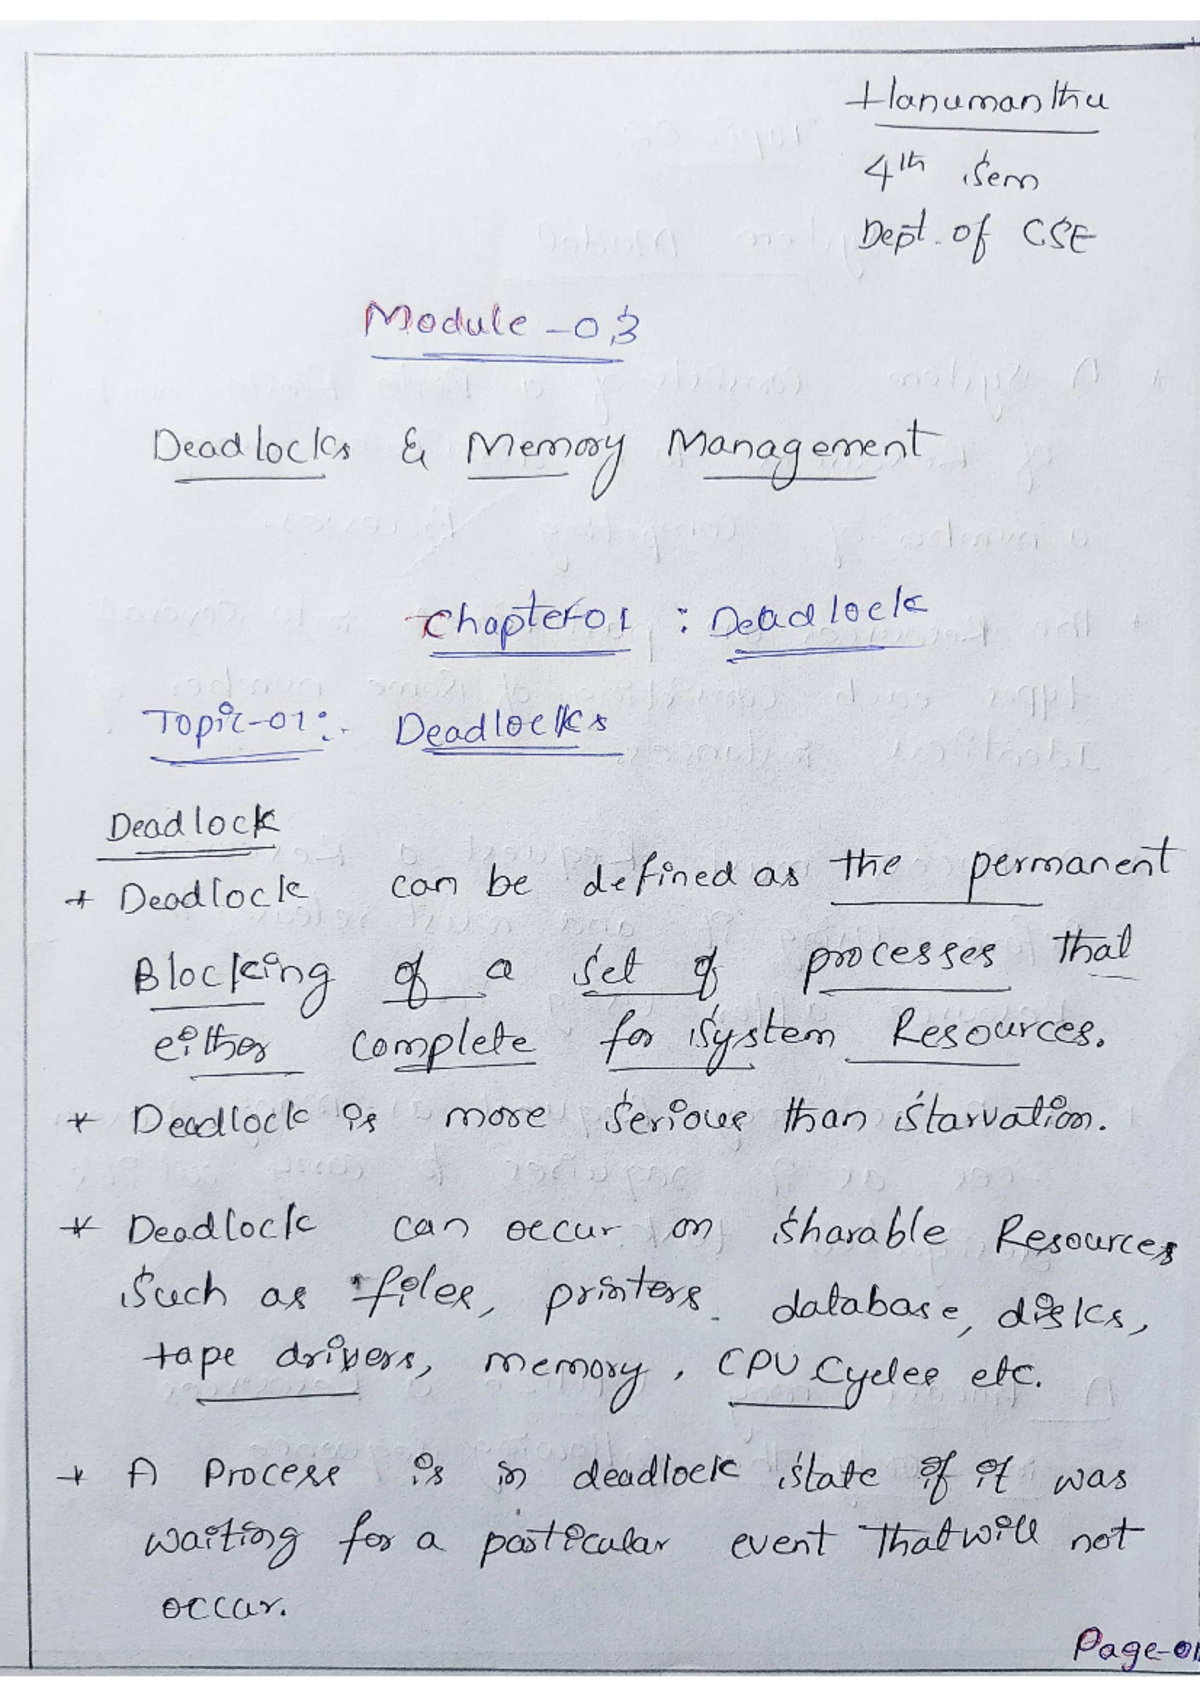 Hanumanthu
4th Sem
Dept. of CSE
Module -03
Deadlocks & Memory Management
Chapter-01 : Deadlock
Topic-01:- Deadlocks
Deadlock
* Deadlock can be defined as the permanent
Blocking of a set of processes that
either complete for System Resources.
* Deadlock is more serious than starvation.
* Deadlock can occur on sharable Resources
Such as files, printers. database, disks,
tape drivers, memory, CPU Cycles etc.
* A Process is in deadlock state if it was
waiting for a particular event that will not
occur.
Page-01